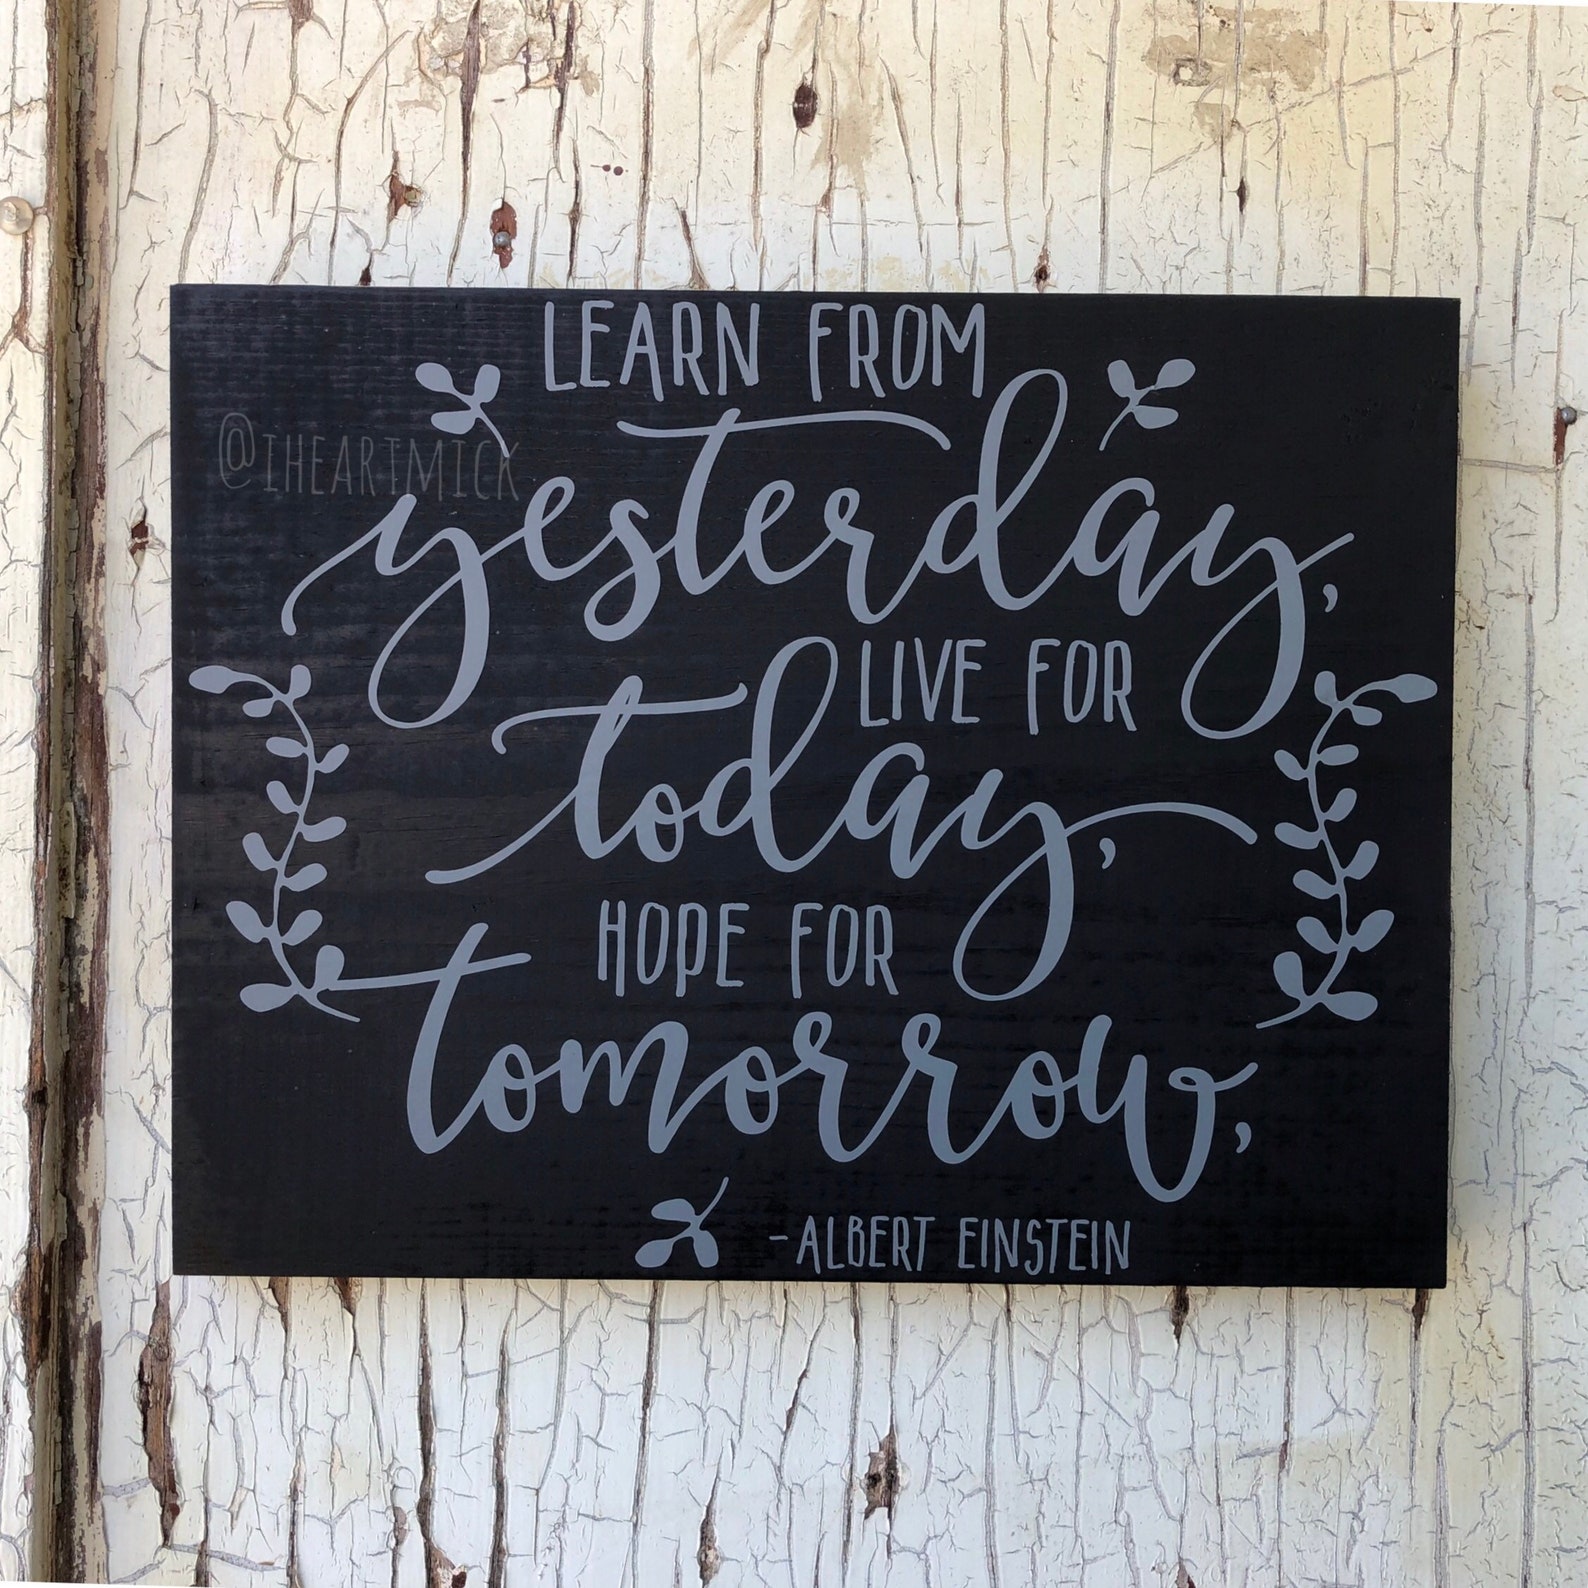 LEARN FROM
@IHEARTMICK
yesterday,
LIVE FOR
today,
HOPE FOR
tomorrow,
-ALBERT EINSTEIN